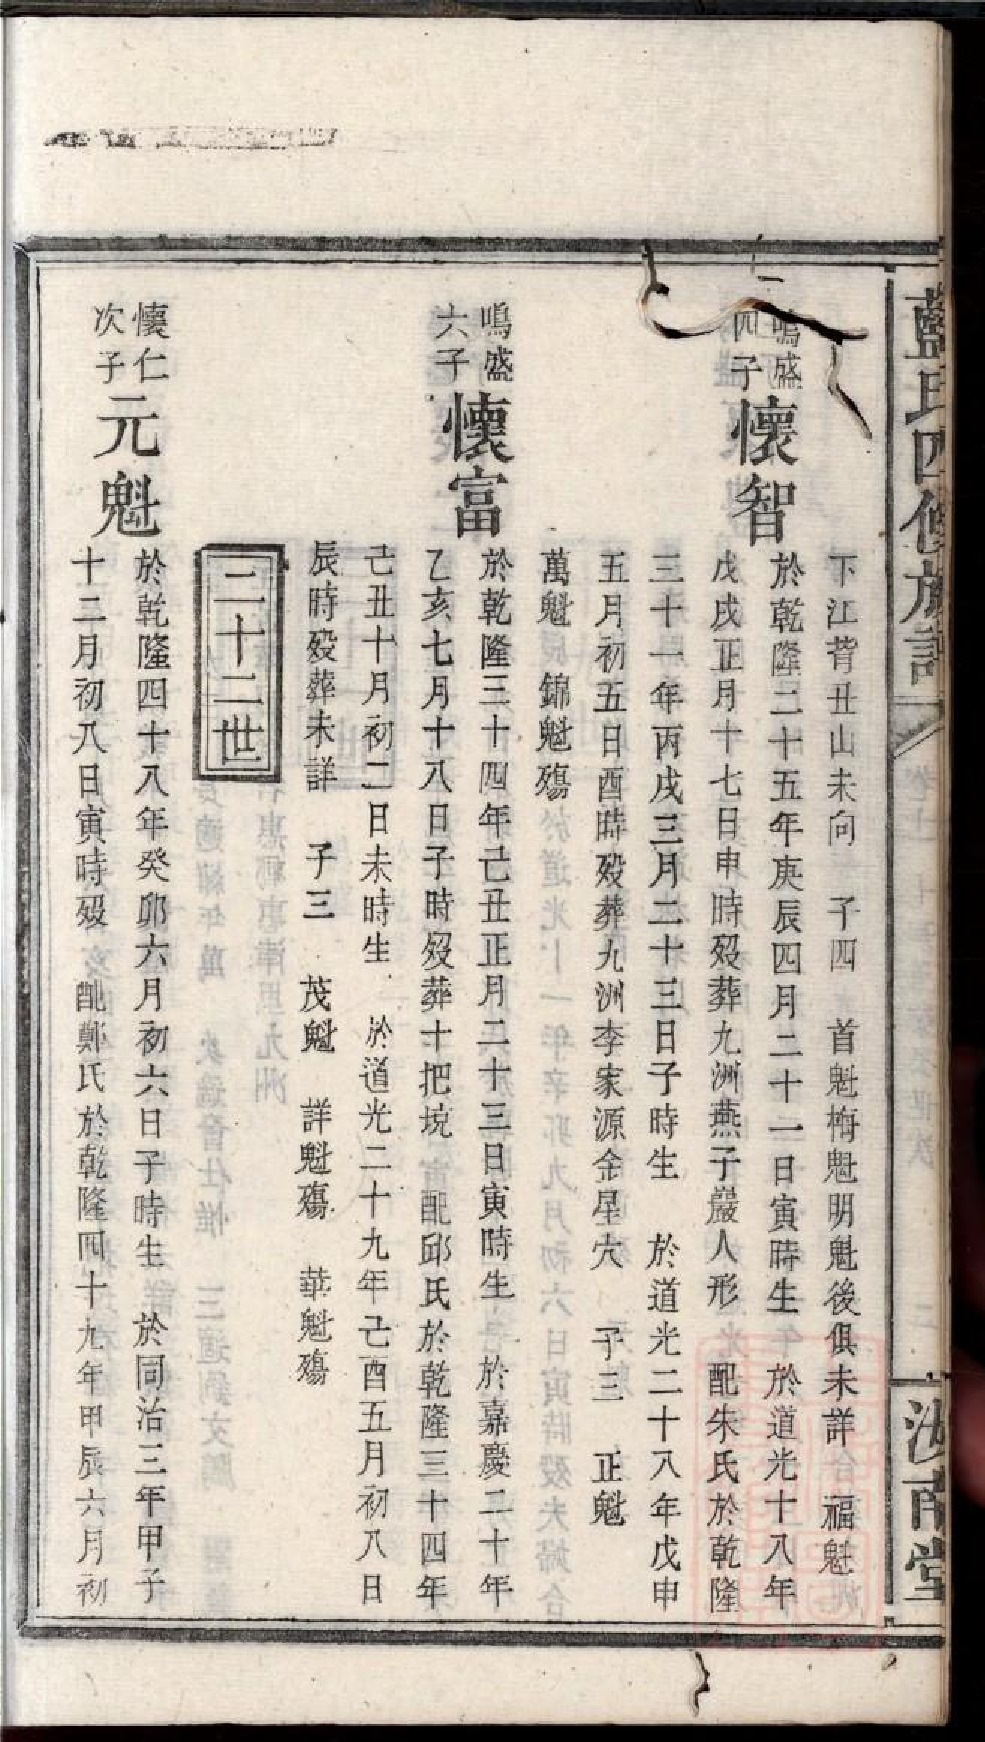 藍氏四修族譜
汝南堂
下江背丑山未向 子四 首魁梅魁明魁後俱未詳 福魁
鳴盛四子
懷智
於乾隆二十五年庚辰四月二十一日寅時生 於道光十八年
戊戌正月十七日申時歿葬九洲燕子巖人形 配朱氏於乾隆
三十一年丙戌三月二十三日子時生 於道光二十八年戊申
五月初五日酉時歿葬九洲李家源金星穴 子三 正魁
萬魁 錦魁殤
鳴盛六子
懷富
於乾隆三十四年己丑正月二十三日寅時生 於嘉慶二十年
乙亥七月十八日子時歿葬十把境 配邱氏於乾隆三十四年
己丑十月初二日未時生 於道光二十九年己酉五月初八日
辰時歿葬未詳 子三 茂魁 詳魁殤 華魁殤
二十二世
懷仁次子
元魁
於乾隆四十八年癸卯六月初六日子時生 於同治三年甲子
十二月初八日寅時歿 配鄭氏於乾隆四十九年甲辰六月初